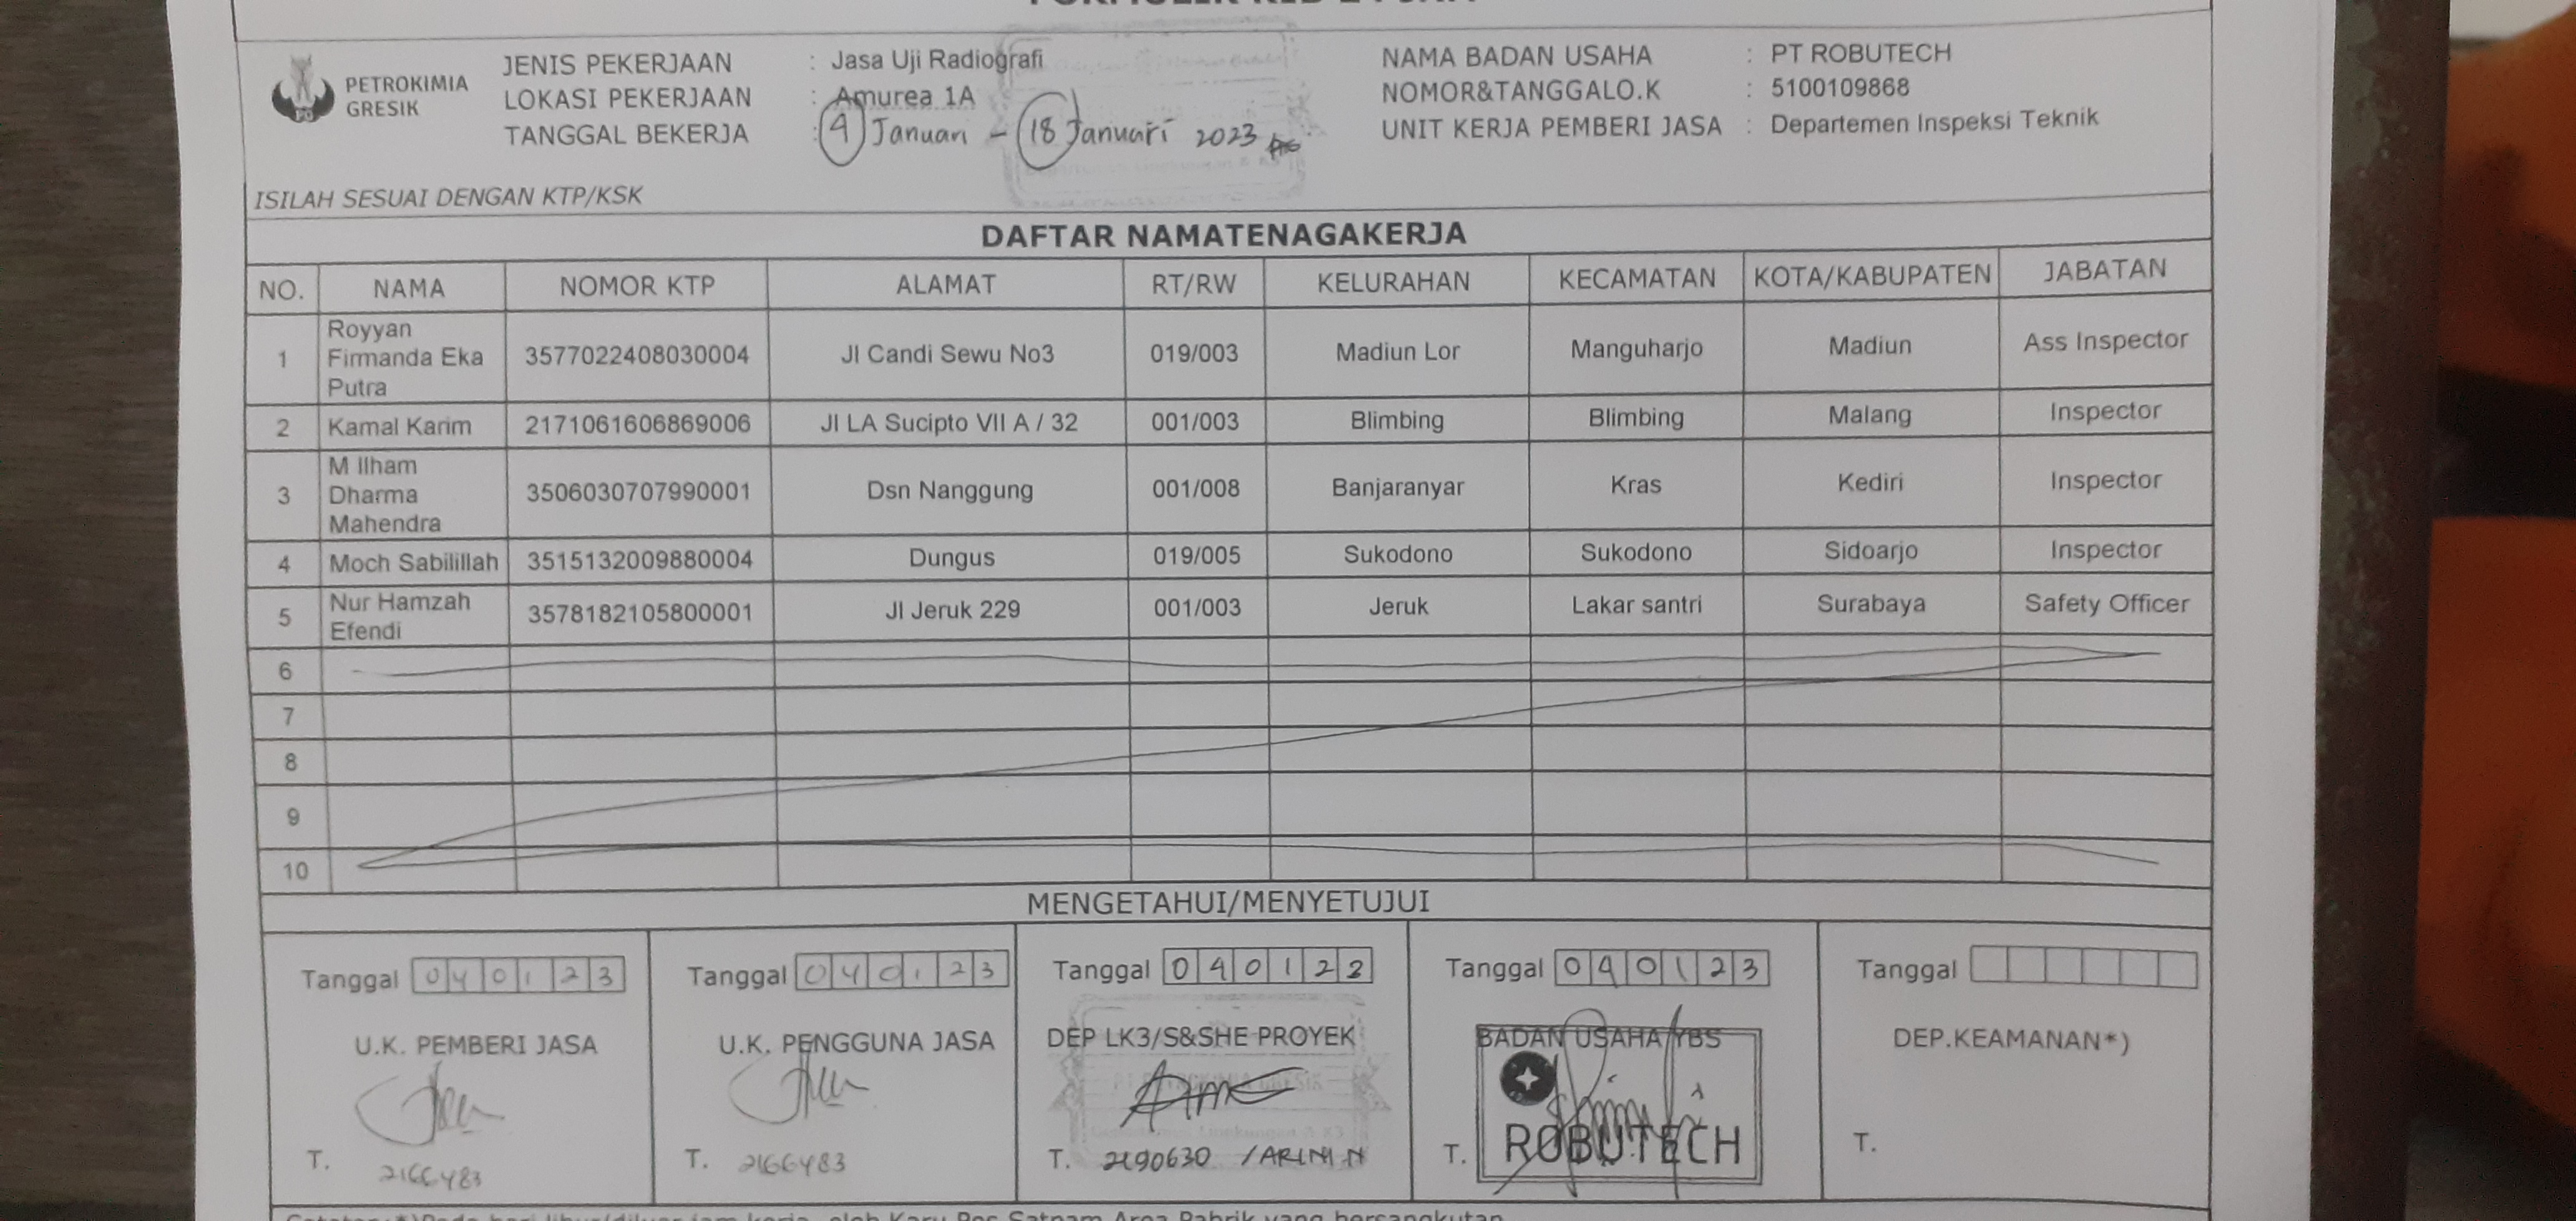 PETROKIMIA
GRESIK
JENIS PEKERJAAN : Jasa Uji Radiografi
LOKASI PEKERJAAN : Amurea 1A
TANGGAL BEKERJA : 4 Januari - 18 Januari 2023
NAMA BADAN USAHA : PT ROBUTECH
NOMOR&TANGGALO.K : 5100109868
UNIT KERJA PEMBERI JASA : Departemen Inspeksi Teknik
ISILAH SESUAI DENGAN KTP/KSK
DAFTAR NAMATENAGAKERJA
NO. NAMA NOMOR KTP ALAMAT RT/RW KELURAHAN KECAMATAN KOTA/KABUPATEN JABATAN
1 Royyan Firmanda Eka Putra 3577022408030004 Jl Candi Sewu No3 019/003 Madiun Lor Manguharjo Madiun Ass Inspector
2 Kamal Karim 2171061606869006 Jl LA Sucipto VII A / 32 001/003 Blimbing Blimbing Malang Inspector
3 M Ilham Dharma Mahendra 3506030707990001 Dsn Nanggung 001/008 Banjaranyar Kras Kediri Inspector
4 Moch Sabilillah 3515132009880004 Dungus 019/005 Sukodono Sukodono Sidoarjo Inspector
5 Nur Hamzah Efendi 3578182105800001 Jl Jeruk 229 001/003 Jeruk Lakar santri Surabaya Safety Officer
6
7
8
9
10
MENGETAHUI/MENYETUJUI
Tanggal 040123
U.K. PEMBERI JASA
T. 2166483
Tanggal 040123
U.K. PENGGUNA JASA
T. 2166483
Tanggal 040122
DEP LK3/S&SHE PROYEK
T. 2190630 /ARIM N
Tanggal 040123
BADAN USAHA YBS
T. ROBUTECH
Tanggal
DEP.KEAMANAN*)
T.